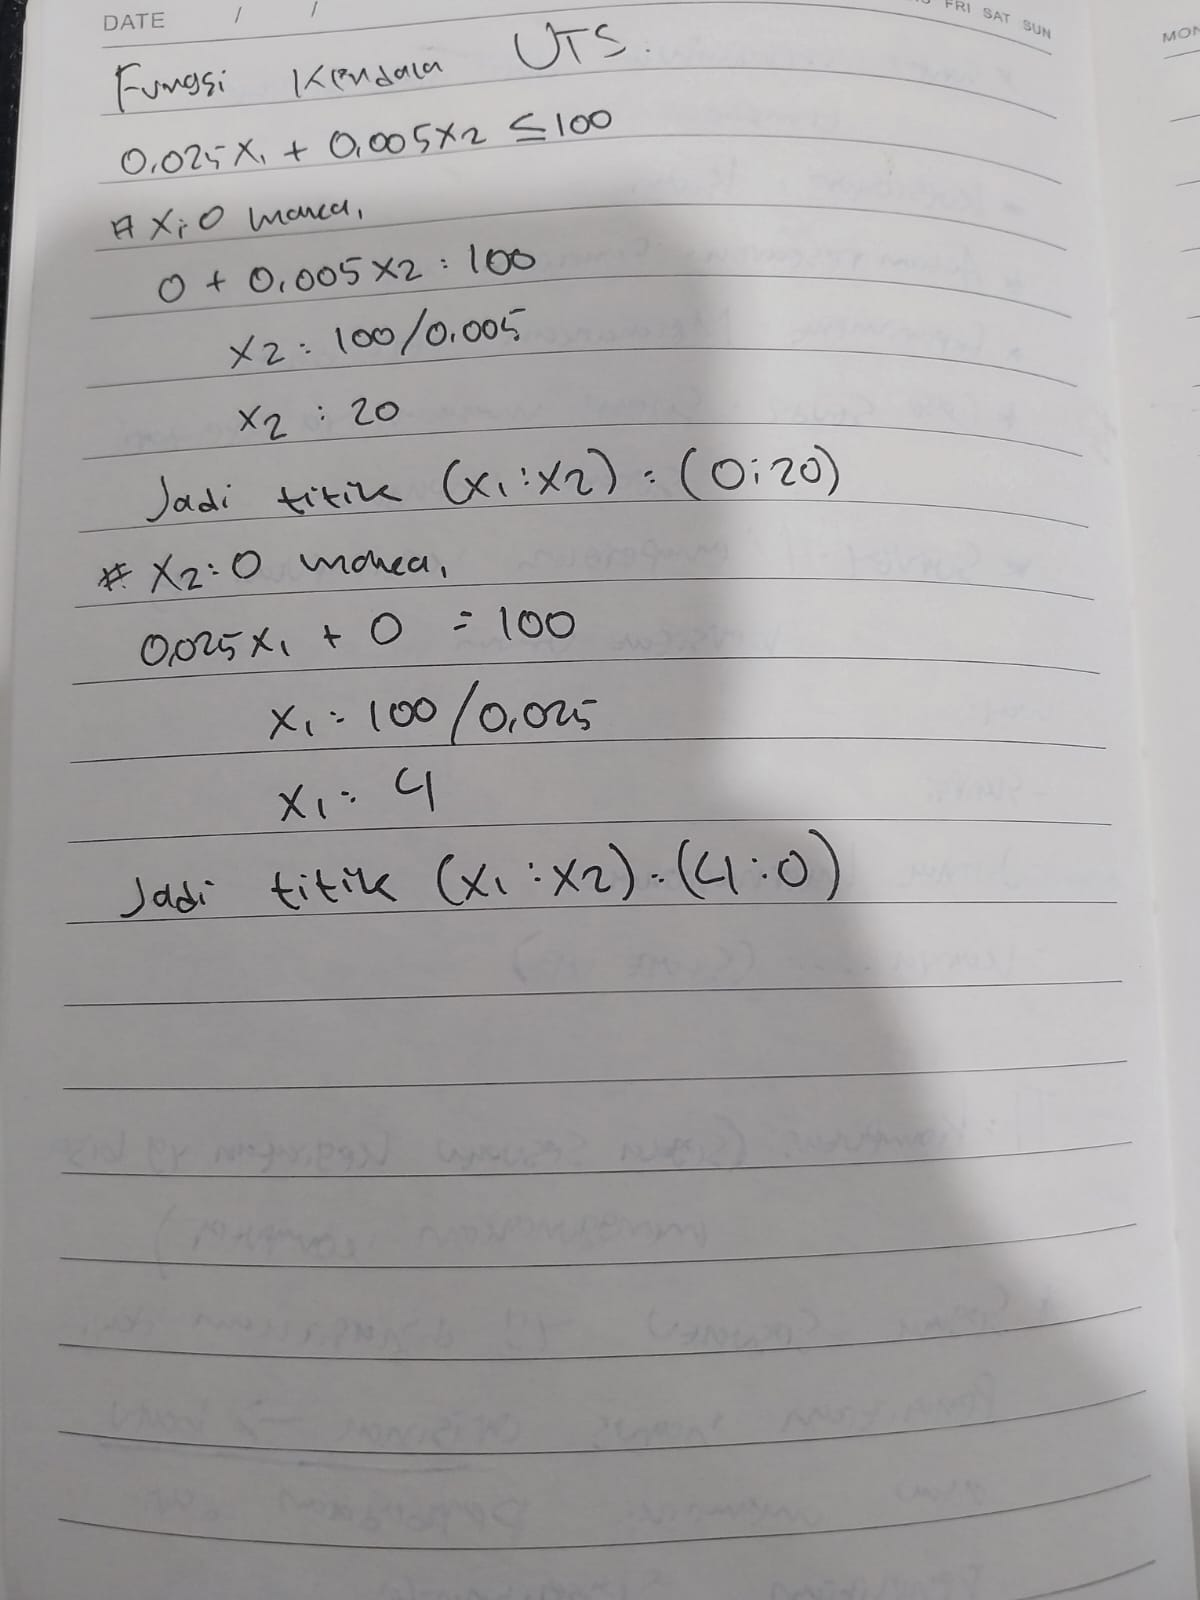 DATE / /
FRI SAT SUN
MON
Fungsi Kendala UTS.
0,025 X1 + 0,005X2 ≤ 100
# X1:0 maka,
0 + 0,005 X2 : 100
X2 : 100/0,005
X2 : 20
Jadi titik (X1 : X2) : (0 ; 20)
# X2 : 0 maka,
0,025 X1 + 0 = 100
X1 : 100 / 0,025
X1 : 4
Jadi titik (X1 : X2) : (4 : 0)